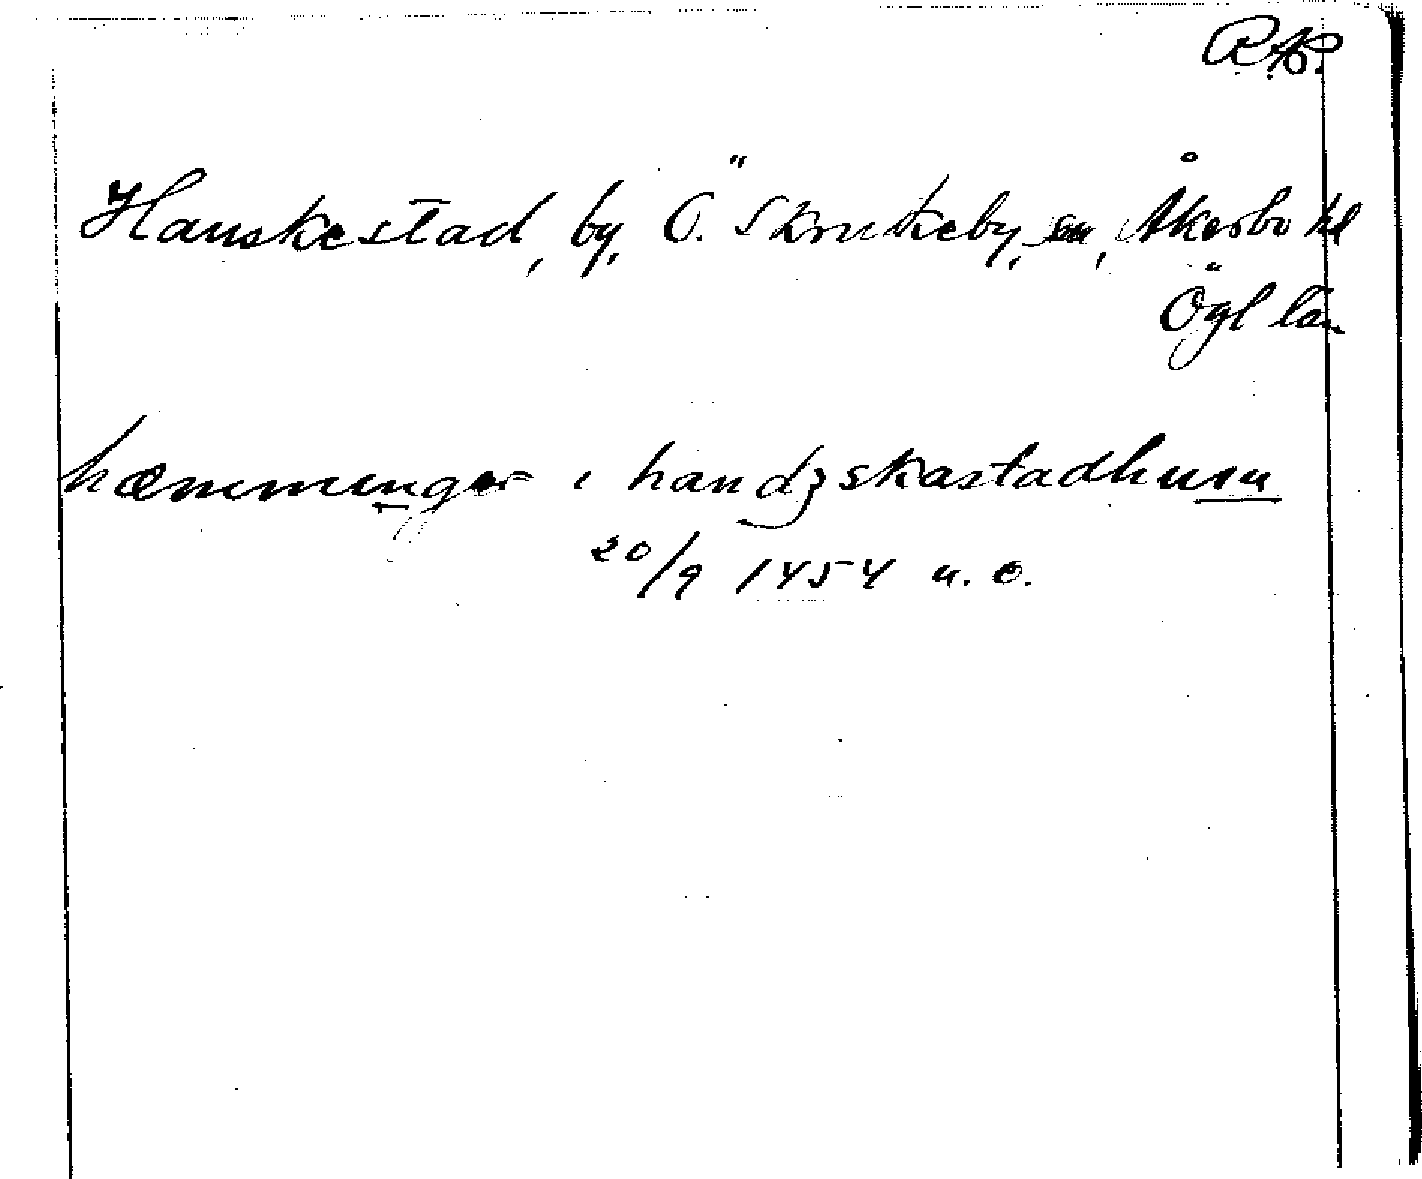 RAP.
Hanskestad, by, Ö. Skrukeby, sn, Åkerbo hd
Ögl län
hæmmunger i handzskastadhum
20/9 1454 u. o.